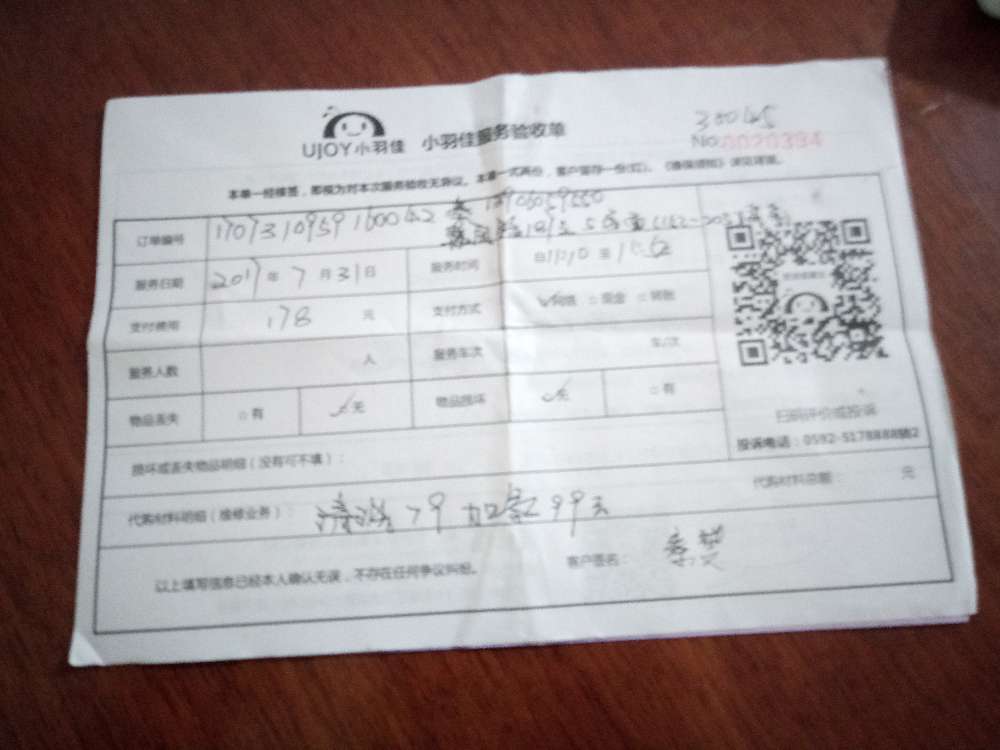 UJOY小羽佳 小羽佳服务验收单
No.0020394
本单一经核签，即视为对本次服务验收无异议。本单一式两份，客户留存一份(红)。《维保须知》详见背面。
订单编号
服务日期 2017年7月31日 服务时间 自11:10至
支付费用 178 元 支付方式 网络 现金 转账
服务人数 人 服务车次 车/次
物品丢失 有 无 物品损坏 无 有
扫码评价或投诉
投诉电话：0592-5178888转2
损坏或丢失物品明细（没有可不填）：
代购材料明细（维修业务）： 清洗79 加氟99元
代购材料总额： 元
以上填写信息已经本人确认无误，不存在任何争议纠纷。 客户签名：